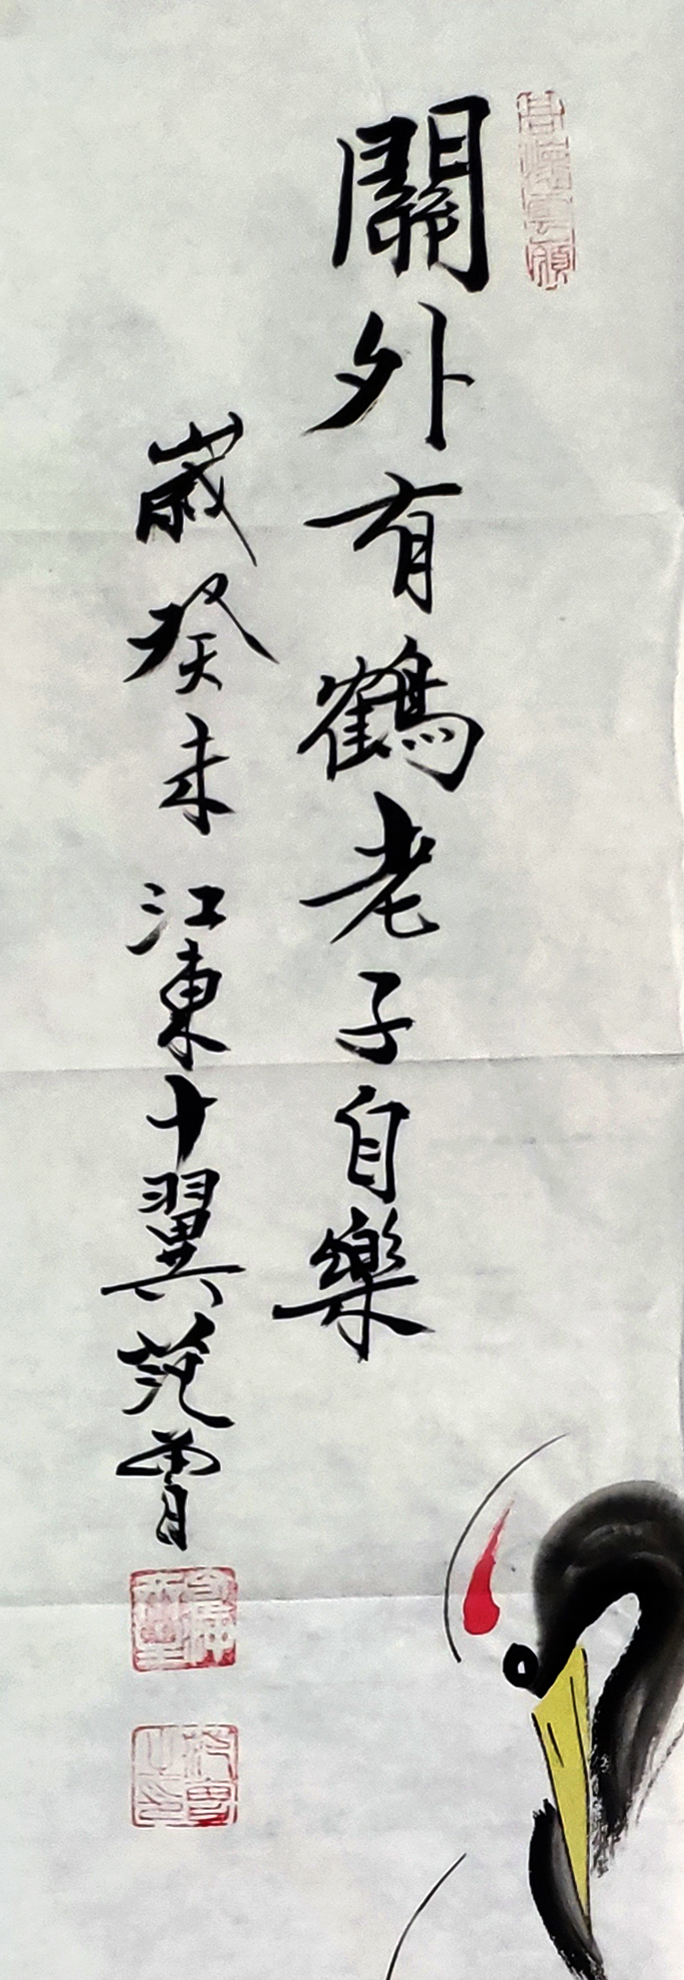 關外有鶴老子自樂
歲癸未江東十翼范曾